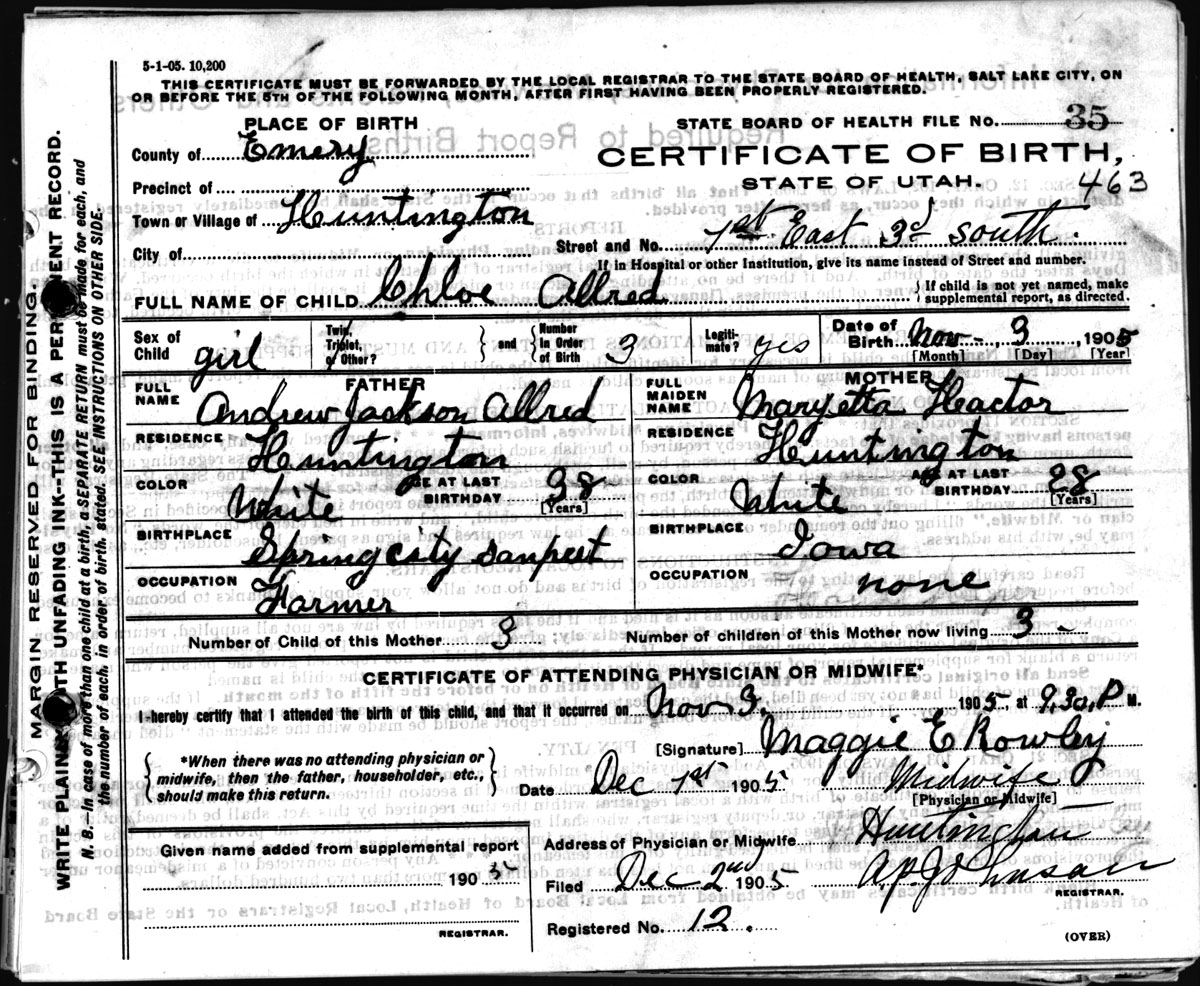 5-1-05. 10,200
THIS CERTIFICATE MUST BE FORWARDED BY THE LOCAL REGISTRAR TO THE STATE BOARD OF HEALTH, SALT LAKE CITY, ON
OR BEFORE THE 5TH OF THE FOLLOWING MONTH, AFTER FIRST HAVING BEEN PROPERLY REGISTERED.
PLACE OF BIRTH
STATE BOARD OF HEALTH FILE NO. 35
County of Emery
CERTIFICATE OF BIRTH,
Precinct of
STATE OF UTAH. 463
Town or Village of Huntington
City of
Street and No. 1st East 3d south.
If in Hospital or other Institution, give its name instead of Street and number.
FULL NAME OF CHILD Chloe Allred
{ If child is not yet named, make supplemental report, as directed.
Sex of Child girl
Twin, Triplet, or Other? } and { Number in Order of Birth 3
Legiti- mate? yes
Date of Birth Nov- 3, 1905
[Month] [Day] [Year]
FATHER
FULL NAME Andrew Jackson Allred
RESIDENCE Huntington
COLOR White AGE AT LAST BIRTHDAY 38 [Years]
BIRTHPLACE Spring city Sanpeet
OCCUPATION Farmer
MOTHER
FULL MAIDEN NAME Maryetta Hactor
RESIDENCE Huntington
COLOR White AGE AT LAST BIRTHDAY 28 [Years]
BIRTHPLACE Iowa
OCCUPATION none
Number of Child of this Mother 3
Number of children of this Mother now living 3 -
CERTIFICATE OF ATTENDING PHYSICIAN OR MIDWIFE*
I hereby certify that I attended the birth of this child, and that it occurred on Nov 3, 1905, at 9,30, P M.
{ *When there was no attending physician or midwife, then the father, householder, etc., should make this return. }
[Signature] Maggie E Rowley
Date Dec 1st 1905 Midwife
[Physician or Midwife]
Address of Physician or Midwife Huntington
Given name added from supplemental report
190
REGISTRAR.
Filed Dec 2nd 1905 A P Johnson
REGISTRAR.
Registered No. 12.
(OVER)
MARGIN RESERVED FOR BINDING.
WRITE PLAINLY WITH UNFADING INK--THIS IS A PERMANENT RECORD.
N. B.--In case of more than one child at a birth, a SEPARATE RETURN must be made for each, and
the number of each, in order of birth, stated. SEE INSTRUCTIONS ON OTHER SIDE.